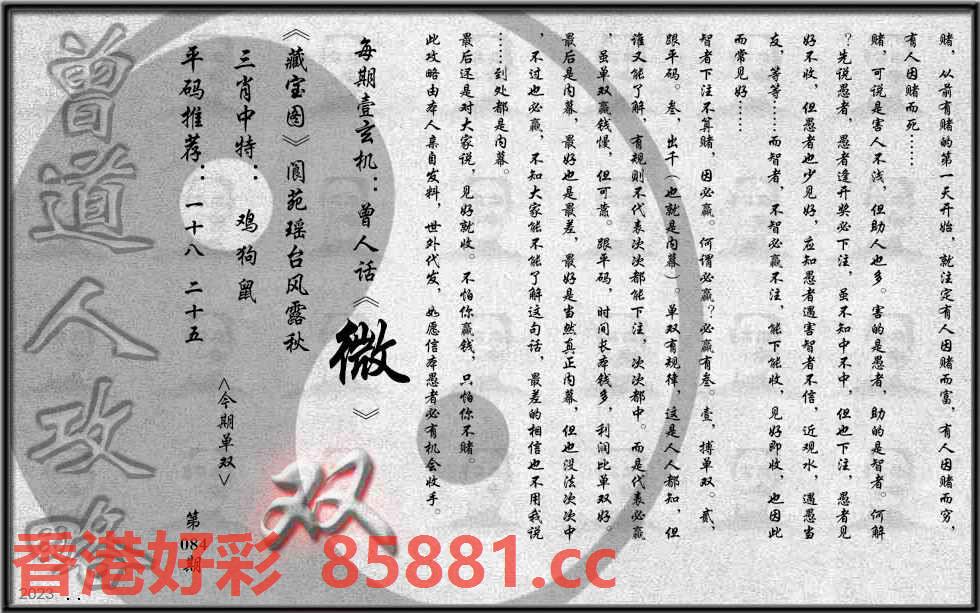 赌，从前有赌的第一天开始，就注定有人因赌而富，有人因赌而穷，
有人因赌而死……
赌，可说是害人不浅，但助人也多。害的是愚者，助的是智者。何解
？先说愚者，愚者逢开奖必下注，虽不知中不中，但也下注，愚者见
好不收，但愚者也少见好，应知愚者遇害智者不信，近观水，遇愚当
友，等等……而智者，不智必赢不注，能下能收，见好即收，也因此
而常见好……
智者下注不算赌，因必赢。何谓必赢？必赢有叁。壹，搏单双。贰，
跟平码。叁，出千（也就是内幕）。单双有规律，这是人人都知，但
谁又能了解，有规则不代表次次都能下注，次次都中。而是代表必赢
，虽单双赢钱慢，但可靠。跟平码，时间长本钱多，利润比单双好。
最后是内幕，最好也是最差，最好是当然真正内幕，但也没法次次中
，不过也必赢，不知大家能不能了解这句话，最差的相信也不用我说
……到处都是内幕。
最后还是对大家说，见好就收。不怕你赢钱，只怕你不赌。
此攻略由本人亲自发料，世外代发，如愿信本愚者必有机会收手。
每期壹玄机：曾人话《微》
《藏宝图》阆苑瑶台风露秋
三肖中特：鸡狗鼠
平码推荐：一十八 二十五
<今期单双>
双
第084期
曾道人攻略
香港好彩 85881.cc
2023